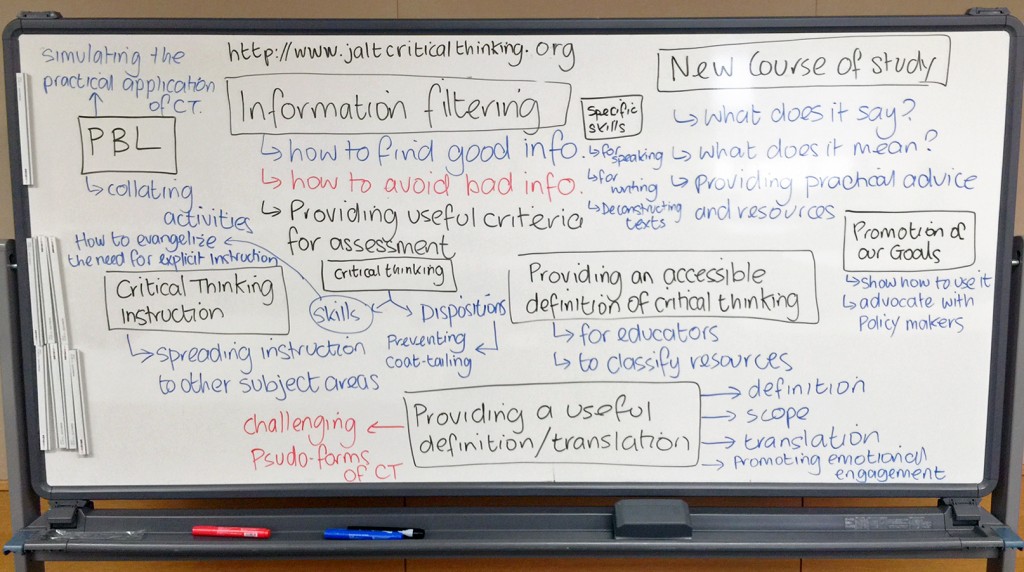 http://www.jaltcriticalthinking.org
simulating the
practical application
of CT.
PBL
collating
activities
Information filtering
how to find good info.
how to avoid bad info.
Providing useful criteria
for assessment
Specific
skills
for speaking
for writing
Deconstructing
texts
New Course of study
what does it say?
what does it mean?
Providing practical advice
and resources
Promotion of
our Goals
show how to use it
advocate with
Policy makers
How to evangelize
the need for explicit instruction
Critical Thinking
instruction
spreading instruction
to other subject areas
Critical thinking
skills
Dispositions
Preventing
coat-tailing
Providing an accessible
definition of critical thinking
for educators
to classify resources
Providing a useful
definition/translation
challenging
Psudo-forms
of CT
definition
scope
translation
Promoting emotional
engagement